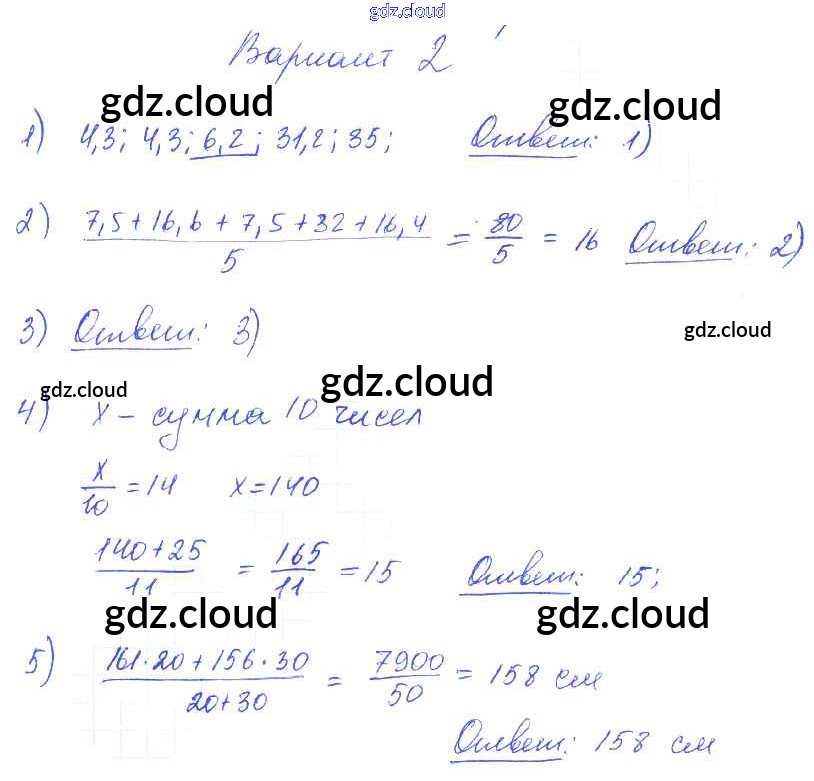 gdz.cloud
Вариант 2
gdz.cloud gdz.cloud
1) 4,3; 4,3; 6,2; 31,2; 35; Ответ: 1)
2) (7,5 + 16,6 + 7,5 + 32 + 16,4)/5 = 80/5 = 16 Ответ: 2)
3) Ответ: 3)
gdz.cloud
gdz.cloud gdz.cloud
4) x – сумма 10 чисел
x/10 = 14 x = 140
(140 + 25)/11 = 165/11 = 15 Ответ: 15;
gdz.cloud gdz.cloud
5) (161·20 + 156·30)/(20 + 30) = 7900/50 = 158 см
Ответ: 158 см